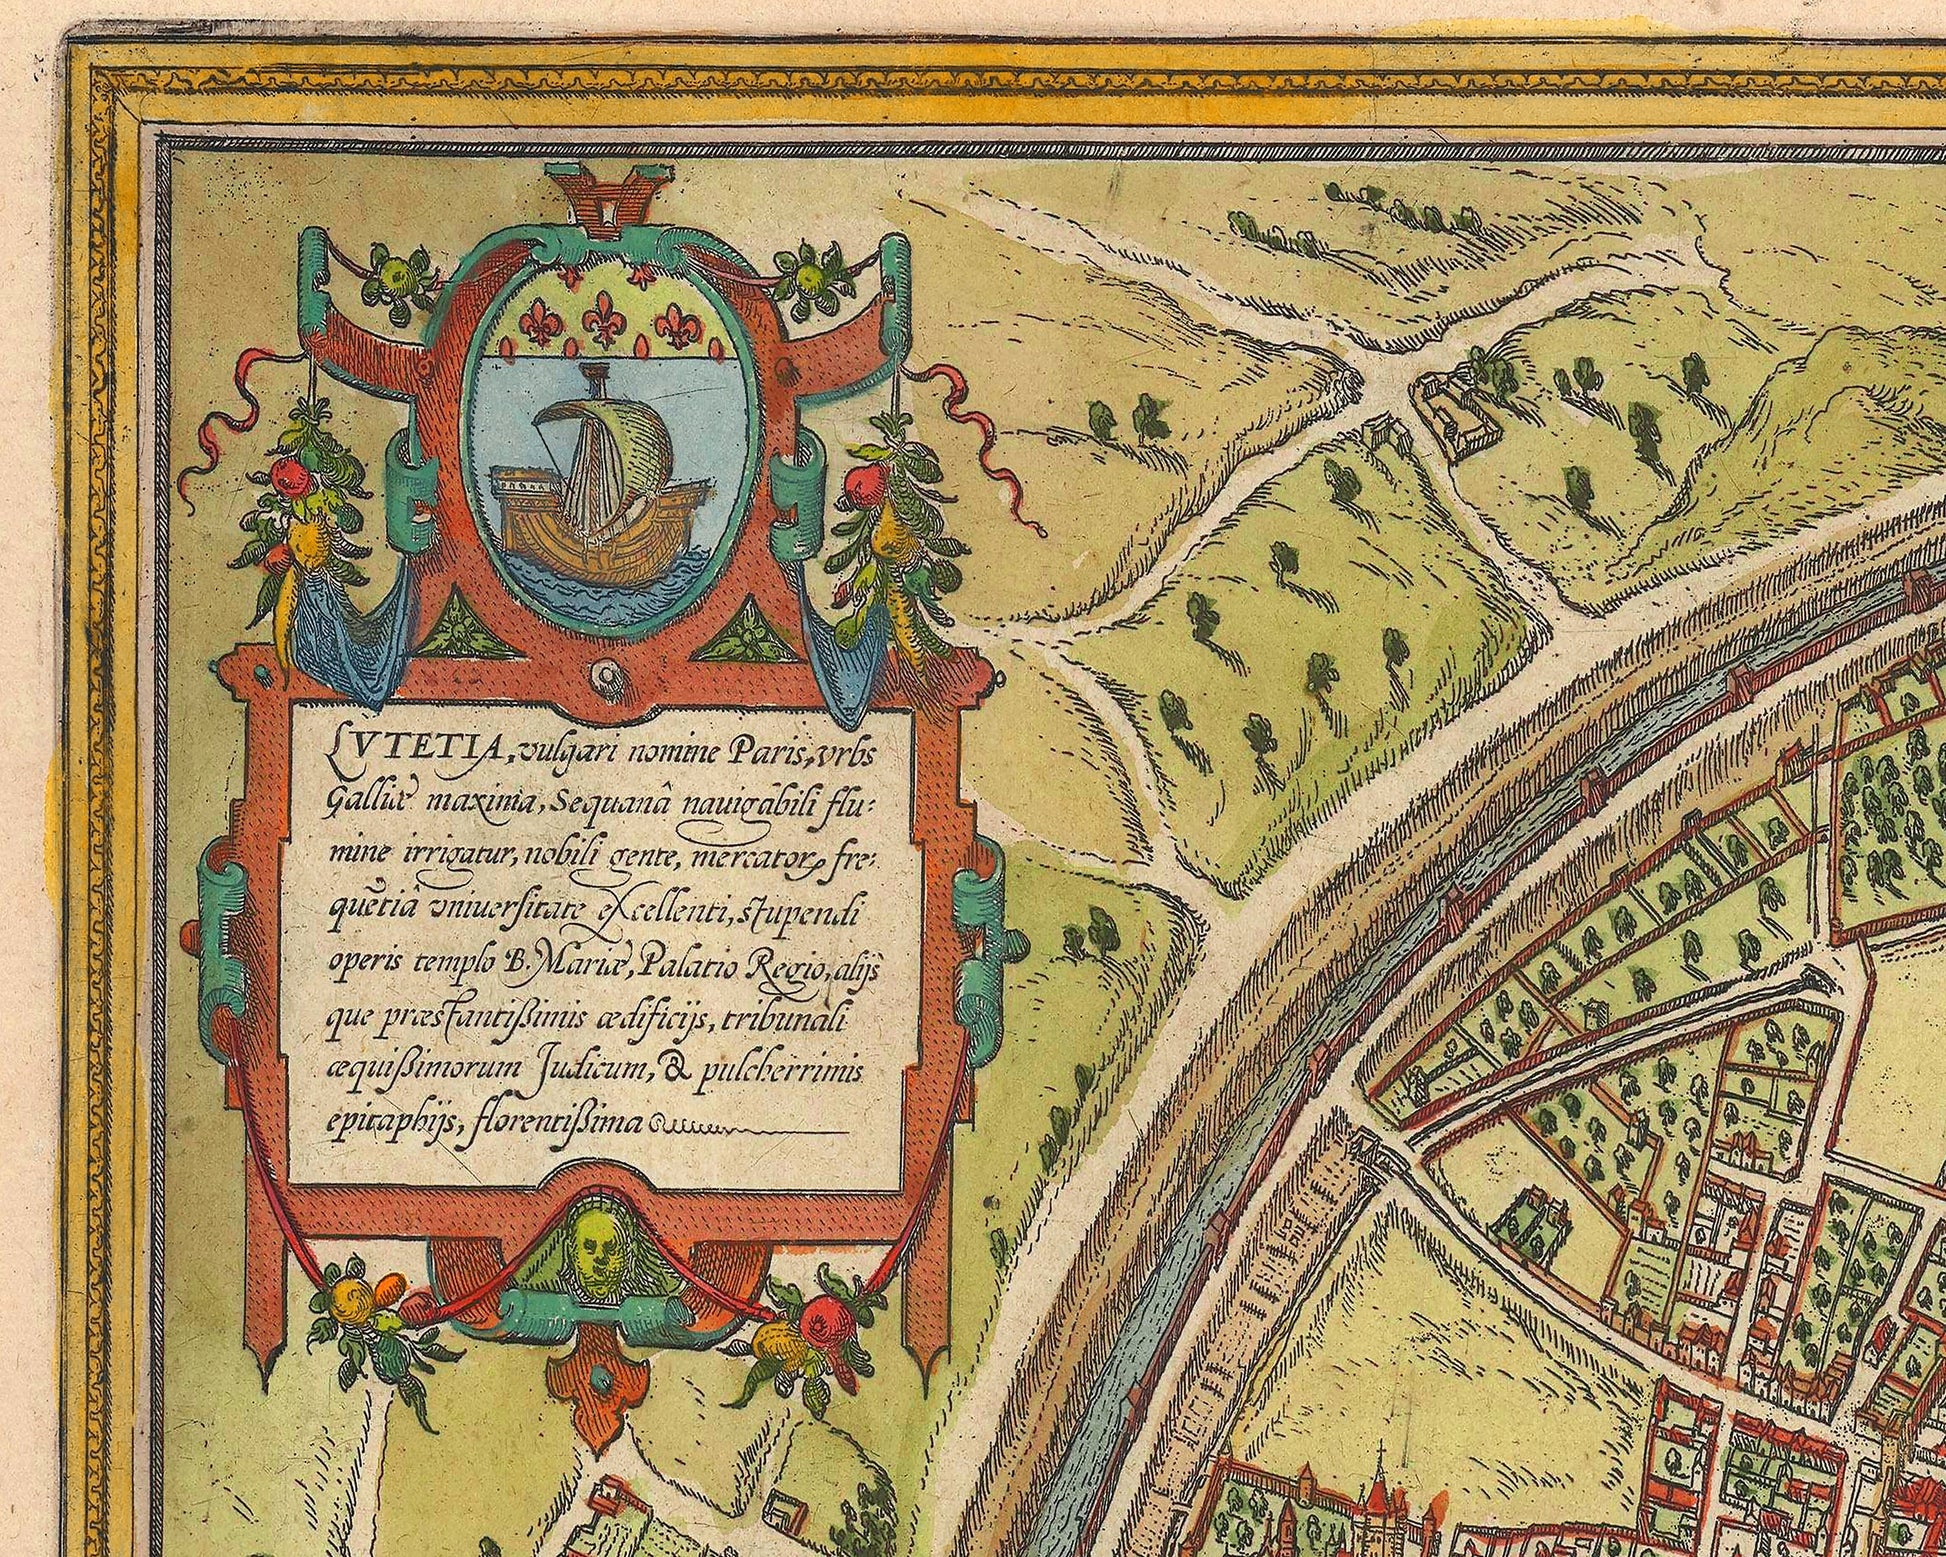 LVTETIA, vulgari nomine Paris, vrbs
Galliæ maxima, Sequanâ nauigabili flu:
mine irrigatur, nobili gente, mercatorꝝ fre:
quētiâ vniuersitate excellenti, stupendi
operis templo B. Mariæ, Palatio Regio, alijs
que præstantißimis ædificijs, tribunali
æquißimorum Judicum, & pulcherrimis
epitaphijs, florentißima